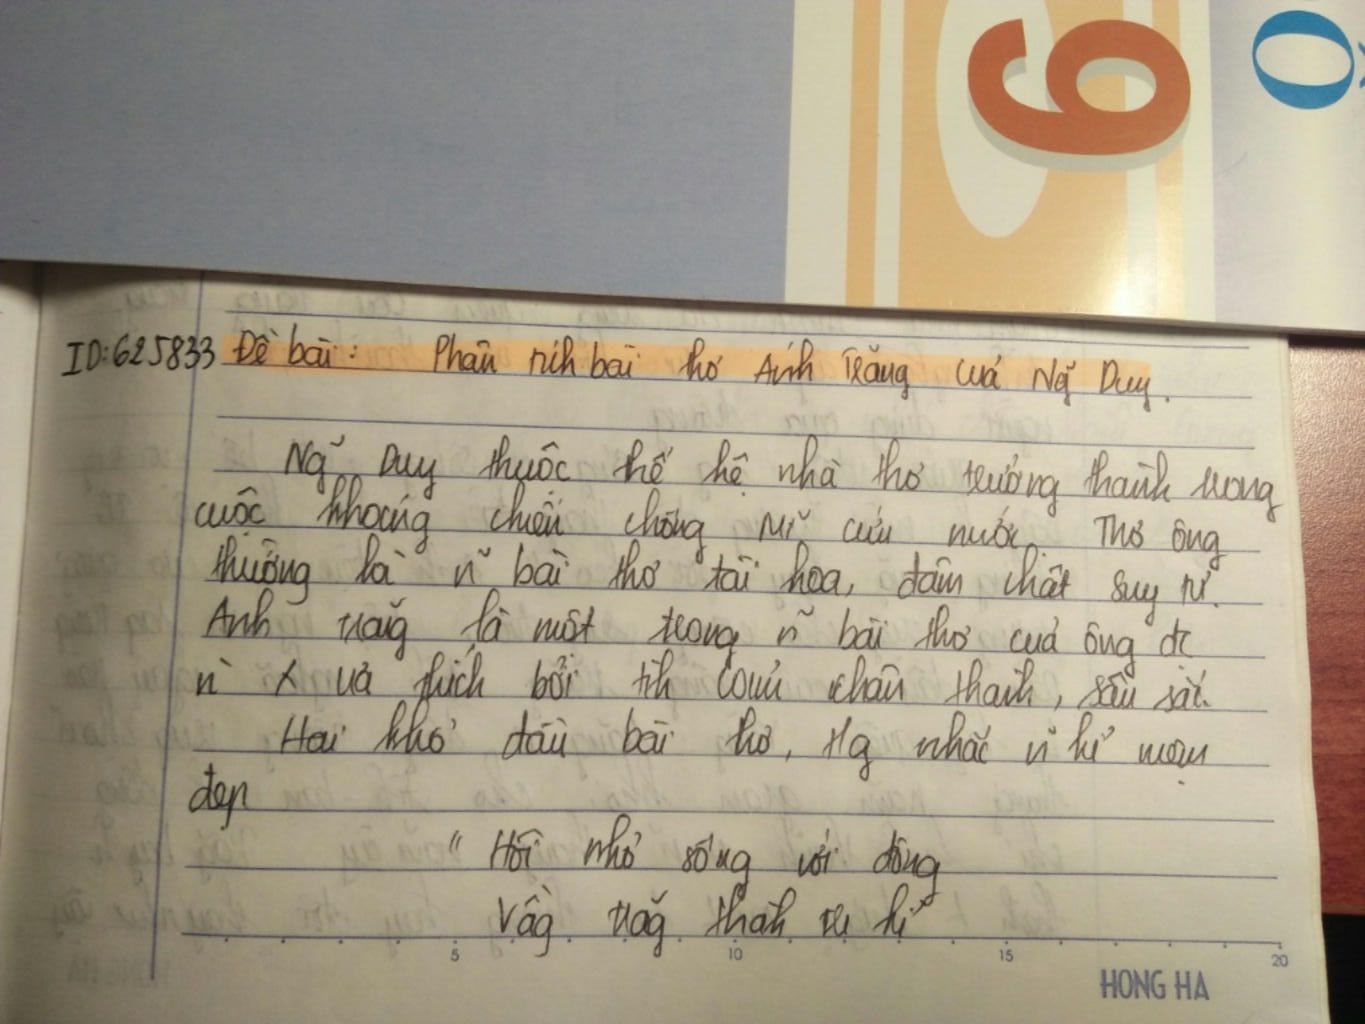 6
ID: 625833 Đề bài: Phân tích bài thơ Ánh Trăng của Ng~ Duy.
Ng~ Duy thuộc thế hệ nhà thơ trưởng thành trong
cuộc kháng chiến chống Mĩ cứu nước. Thơ ông
thường là n~ bài thơ tài hoa, đậm chất suy tư.
Ánh trăg là một trong n~ bài thơ của ông đc
n` x ưa thích bởi tìh chân thành, sâu sắc.
Hai khổ đầu bài thơ, t/g nhắc n~ kí
đẹp
" Hồi nhỏ sống với đồng
Vầg trăg thàh tri kỉ"
5 10 15 20
HONG HA